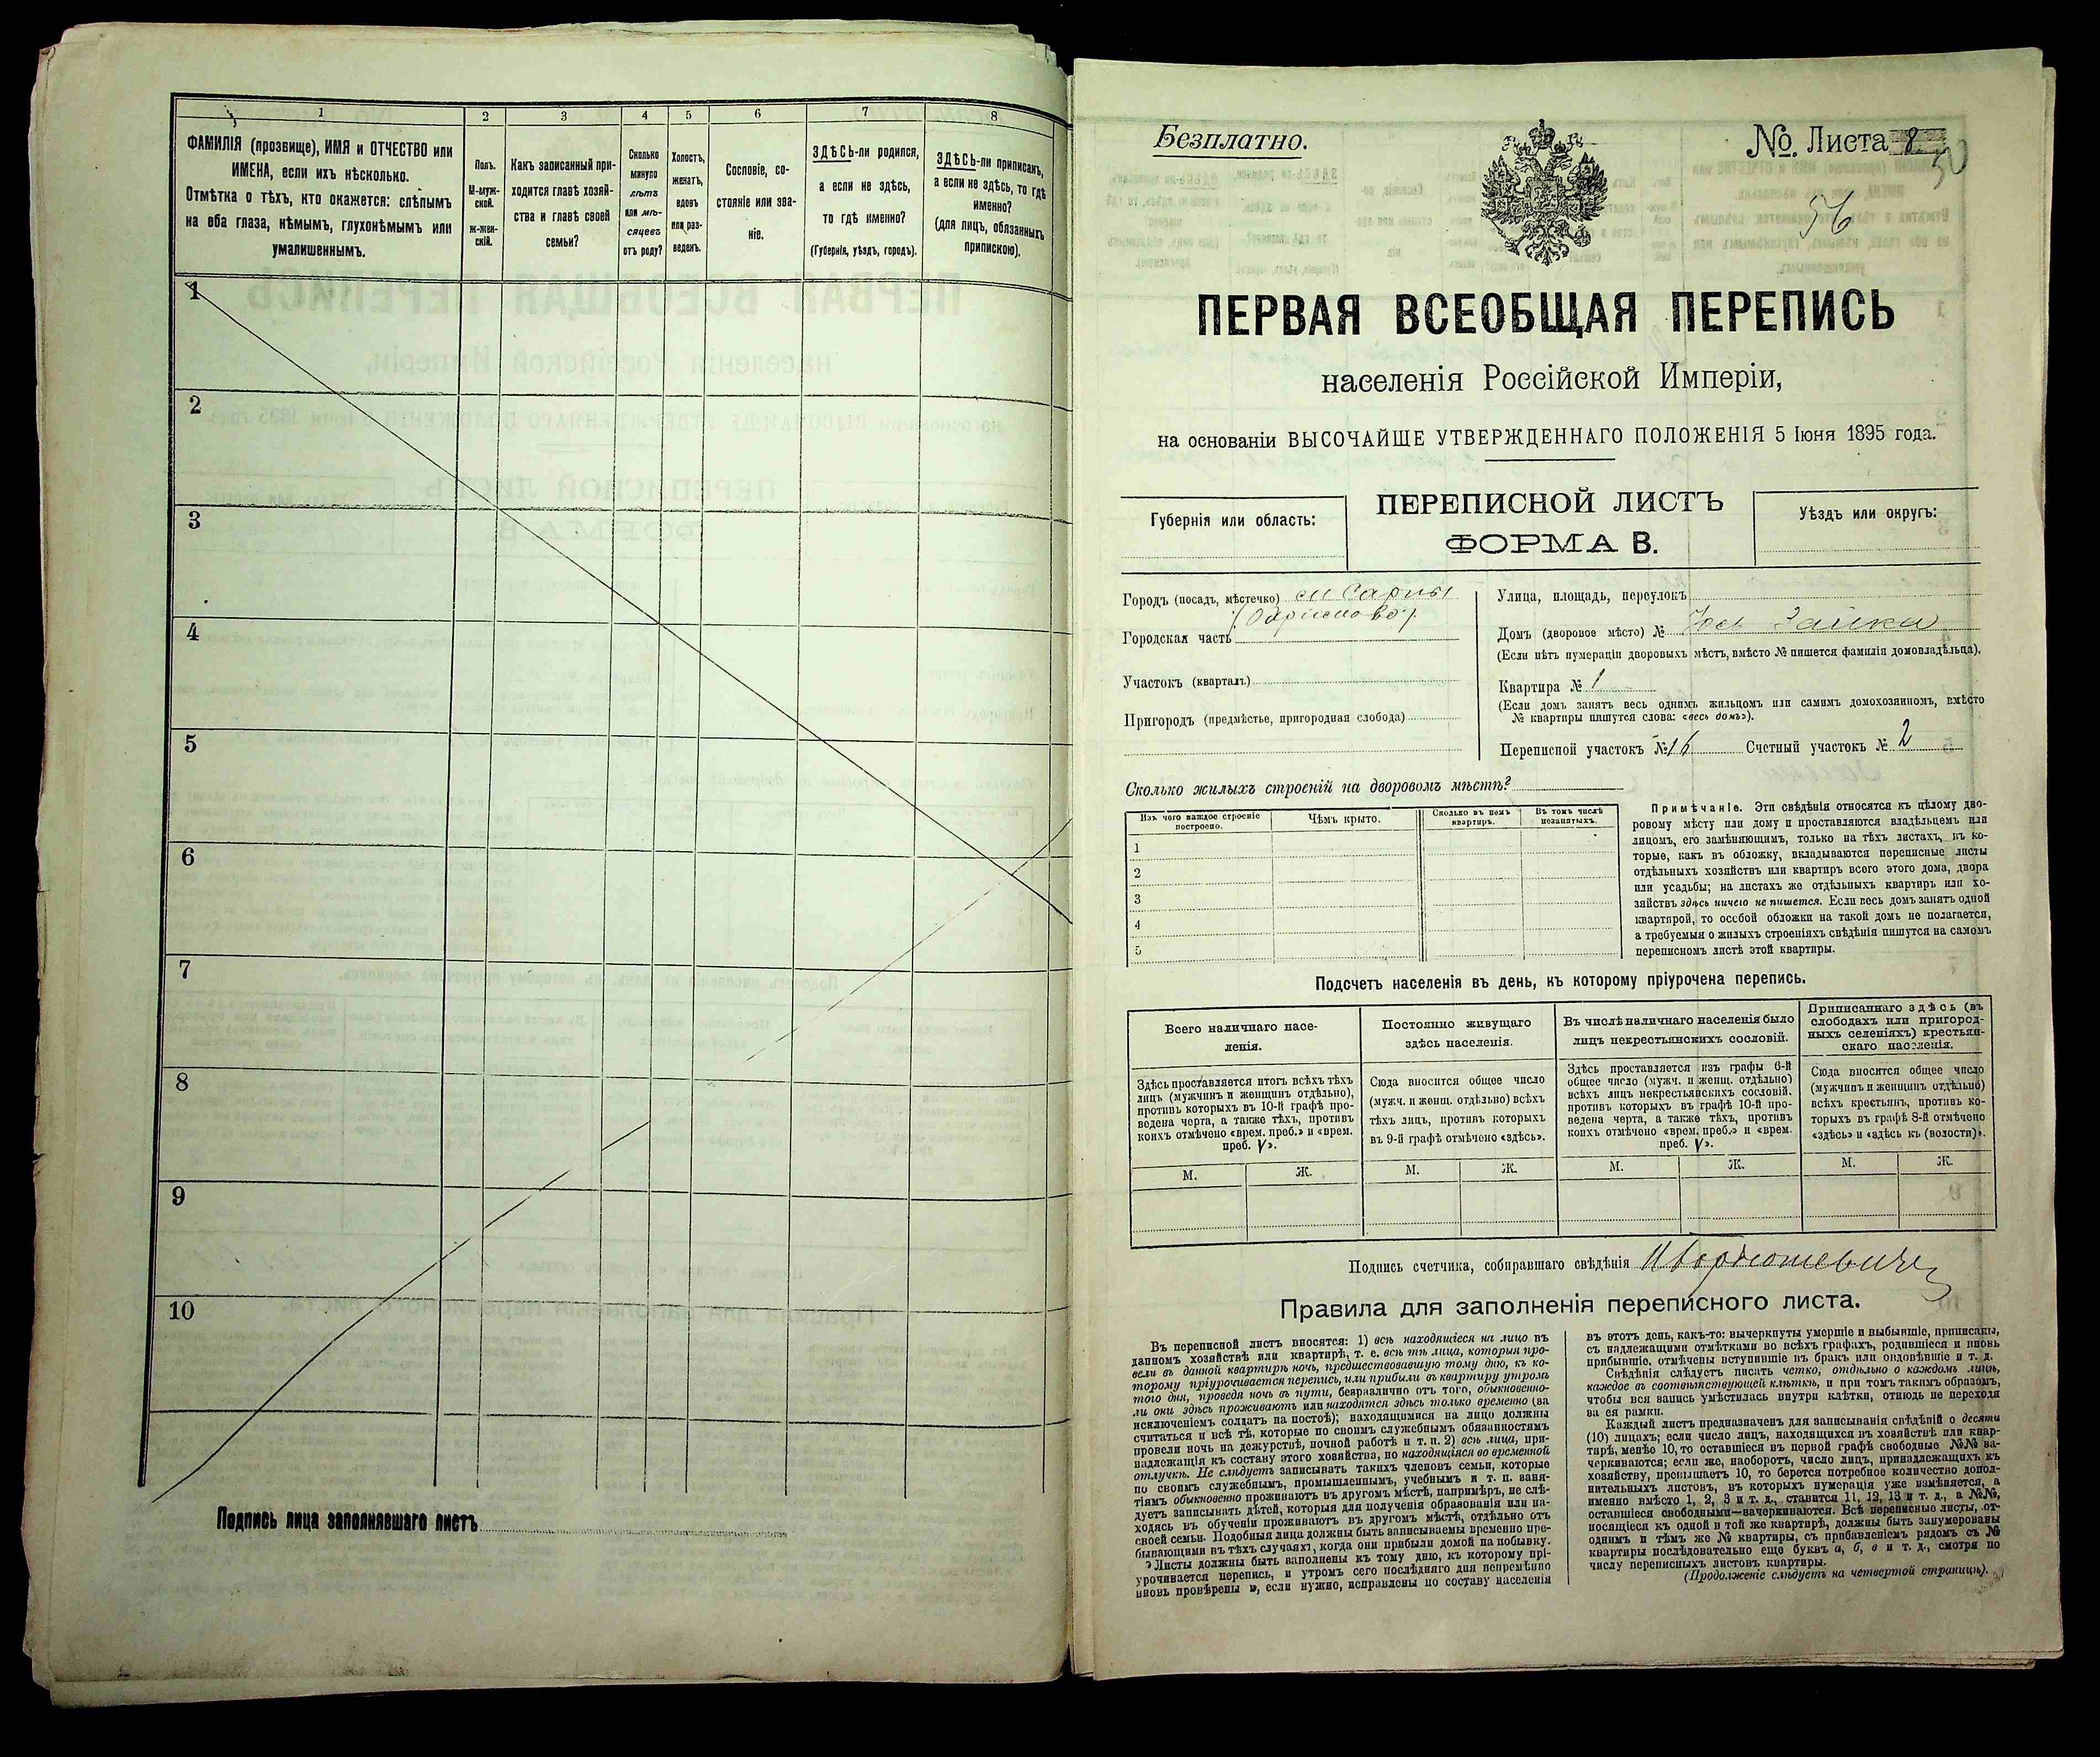 1
2
3
4
5
6
7
8
ФАМИЛІЯ (прозвище), ИМЯ и ОТЧЕСТВО или
ИМЕНА, если ихъ нѣсколько.
Отмѣтка о тѣхъ, кто окажется: слѣпымъ
на оба глаза, нѣмымъ, глухонѣмымъ или
умалишеннымъ.
Полъ.
М-муж-
ской.
Ж-жен-
скій.
Какъ записанный при-
ходится главѣ хозяй-
ства и главѣ своей
семьи?
Сколько
минуло
лѣтъ
или мѣ-
сяцевъ
отъ роду?
Холостъ,
женатъ,
вдовъ
или раз-
веденъ.
Сословіе, со-
стояніе или зва-
ніе.
ЗДѢСЬ-ли родился,
а если не здѣсь,
то гдѣ именно?
(Губернія, уѣздъ, городъ).
ЗДѢСЬ-ли приписанъ,
а если не здѣсь, то гдѣ
именно?
(для лицъ, обязанныхъ
припискою).
1
2
3
4
5
6
7
8
9
10
Подпись лица заполнявшаго листъ
Безплатно.
№ Листа 8
50
56
ПЕРВАЯ ВСЕОБЩАЯ ПЕРЕПИСЬ
населенія Россійской Имперіи,
на основаніи ВЫСОЧАЙШЕ УТВЕРЖДЕННАГО ПОЛОЖЕНІЯ 5 Іюня 1895 года.
Губернія или область:
ПЕРЕПИСНОЙ ЛИСТЪ
ФОРМА В.
Уѣздъ или округъ:
Городъ (посадъ, мѣстечко) м Сарны
Городская часть
Участокъ (кварталъ)
Пригородъ (предмѣстье, пригородная слобода)
Улица, площадь, переулокъ
Домъ (дворовое мѣсто) № Іось Зайка
(Если нѣтъ нумераціи дворовыхъ мѣстъ, вмѣсто № пишется фамилія домовладѣльца).
Квартира № 1
(Если домъ занятъ весь однимъ жильцомъ или самимъ домохозяиномъ, вмѣсто
№ квартиры пишутся слова: «весь домъ»).
Переписной участокъ № 16 Счетный участокъ № 2
Сколько жилыхъ строеній на дворовомъ мѣстѣ?
Изъ чего каждое строеніе
построено.
Чѣмъ крыто.
Сколько въ немъ
квартиръ.
Въ томъ числѣ
незанятыхъ.
1
2
3
4
5
Примѣчаніе. Эти свѣдѣнія относятся къ цѣлому дво-
ровому мѣсту или дому и проставляются владѣльцемъ или
лицомъ, его замѣняющимъ, только на тѣхъ листахъ, въ ко-
торые, какъ въ обложку, вкладываются переписные листы
отдѣльныхъ хозяйствъ или квартиръ всего этого дома, двора
или усадьбы; на листахъ же отдѣльныхъ квартиръ или хо-
зяйствъ здѣсь ничего не пишется. Если весь домъ занятъ одной
квартирой, то особой обложки на такой домъ не полагается,
а требуемыя о жилыхъ строеніяхъ свѣдѣнія пишутся на самомъ
переписномъ листѣ этой квартиры.
Подсчетъ населенія въ день, къ которому пріурочена перепись.
Всего наличнаго насе-
ленія.
Постоянно живущаго
здѣсь населенія.
Въ числѣ наличнаго населенія было
лицъ некрестьянскихъ сословій.
Приписаннаго здѣсь (въ
слободахъ или пригород-
ныхъ селеніяхъ) крестьян-
скаго населенія.
Здѣсь проставляется итогъ всѣхъ тѣхъ
лицъ (мужчинъ и женщинъ отдѣльно),
противъ которыхъ въ 10-й графѣ про-
ведена черта, а также тѣхъ, противъ
коихъ отмѣчено «врем. преб.» и «врем.
преб. V».
Сюда вносится общее число
(мужч. и женщ. отдѣльно) всѣхъ
тѣхъ лицъ, противъ которыхъ
въ 9-й графѣ отмѣчено «здѣсь».
Здѣсь проставляется изъ графы 6-й
общее число (мужч. и женщ. отдѣльно)
всѣхъ лицъ некрестьянскихъ сословій.
противъ которыхъ въ графѣ 10-й про-
ведена черта, а также тѣхъ, противъ
коихъ отмѣчено «врем. преб.» и «врем.
преб. V».
Сюда вносится общее число
(мужчинъ и женщинъ отдѣльно)
всѣхъ крестьянъ, противъ ко-
торыхъ въ графѣ 8-й отмѣчено
«здѣсь» и «здѣсь къ (волости)».
М.
Ж.
М.
Ж.
М.
Ж.
М.
Ж.
Подпись счетчика, собиравшаго свѣдѣнія
Правила для заполненія переписного листа.
Въ переписной листъ вносятся: 1) всѣ находящіеся на лицо въ
данномъ хозяйствѣ или квартирѣ, т. е. всѣ тѣ лица, которыя про-
вели въ данной квартирѣ ночь, предшествовавшую тому дню, къ ко-
торому пріурочивается перепись, или прибыли въ квартиру утромъ
того дня, проведя ночь въ пути, безразлично отъ того, обыкновенно-
ли они здѣсь проживаютъ или находятся здѣсь только временно (за
исключеніемъ солдатъ на постоѣ); находящимися на лицо должны
считаться и всѣ тѣ, которые по своимъ служебнымъ обязанностямъ
провели ночь на дежурствѣ, ночной работѣ и т. п. 2) всѣ лица, при-
надлежащія къ составу этого хозяйства, но находящіяся во временной
отлучкѣ. Не слѣдуетъ записывать такихъ членовъ семьи, которые
по своимъ служебнымъ, промышленнымъ, учебнымъ и т. п. заня-
тіямъ обыкновенно проживаютъ въ другомъ мѣстѣ, напримѣръ, не слѣ-
дуетъ записывать дѣтей, которыя для полученія образованія или на-
ходясь въ обученіи проживаютъ въ другомъ мѣстѣ, отдѣльно отъ
своей семьи. Подобныя лица должны быть записываемы временно пре-
бывающими въ тѣхъ случаяхъ, когда они прибыли домой на побывку.
Листы должны быть заполнены къ тому дню, къ которому прі-
урочивается перепись, и утромъ сего послѣдняго дня непремѣнно
вновь провѣрены и, если нужно, исправлены по составу населенія
въ этотъ день, какъ-то: вычеркнуты умершіе и выбывшіе, приписаны,
съ надлежащими отмѣтками во всѣхъ графахъ, родившіеся и вновь
прибывшіе, отмѣчены вступившіе въ бракъ или овдовѣвшіе и т. д.
Свѣдѣнія слѣдуетъ писать четко, отдѣльно о каждомъ лицѣ,
каждое въ соотвѣтствующей клѣткѣ, и при томъ такимъ образомъ,
чтобы вся запись умѣстилась внутри клѣтки, отнюдь не переходя
за ея рамки.
Каждый листъ предназначенъ для записыванія свѣдѣній о десяти
(10) лицахъ; если число лицъ, находящихся въ хозяйствѣ или квар-
тирѣ, менѣе 10, то оставшіеся въ первой графѣ свободные №№ за-
черкиваются; если же, наоборотъ, число лицъ, принадлежащихъ къ
хозяйству, превышаетъ 10, то берется потребное количество допол-
нительныхъ листовъ, въ которыхъ нумерація уже измѣняется, а
именно вмѣсто 1, 2, 3 и т. д., ставится 11, 12, 13 и т. д., а №№,
оставшіеся свободными—зачеркиваются. Всѣ переписные листы, от-
носящіеся къ одной и той же квартирѣ, должны быть занумерованы
однимъ и тѣмъ же № квартиры, съ прибавленіемъ рядомъ съ №
квартиры послѣдовательно еще буквъ а, б, в и т. д., смотря по
числу переписныхъ листовъ квартиры.
(Продолженіе слѣдуетъ на четвертой страницѣ).